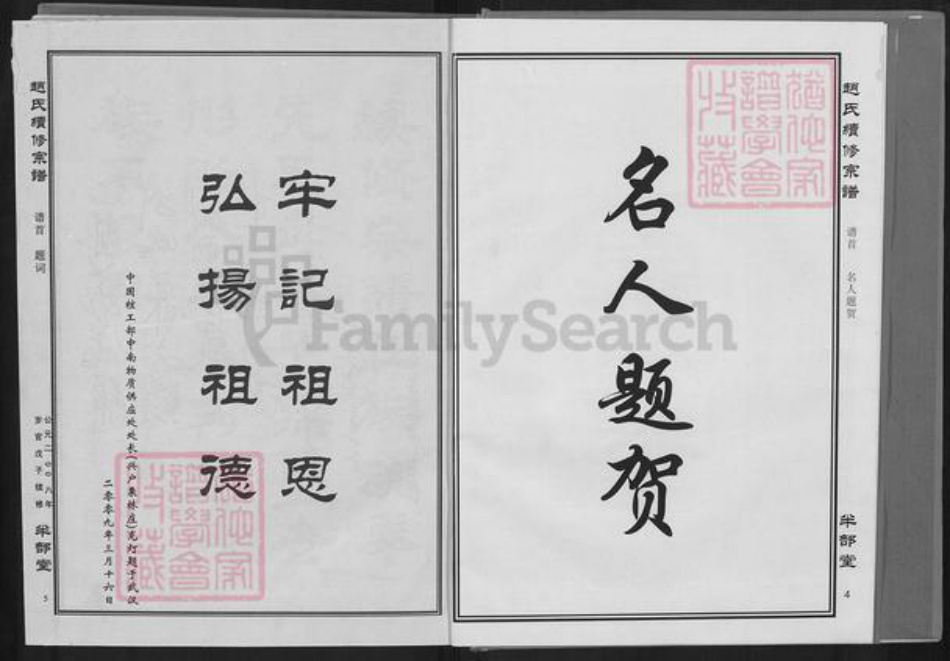 趙氏續修宗譜
谱首 名人题贺
半部堂
4
名人题贺
猶他家
譜學會
收藏
FamilySearch
牢記祖恩
弘揚祖德
中国核工部中南物质供应处处长(兴户秉林庄)克灯题于武汉
二零零九年三月十六日
猶他家
譜學會
收藏
趙氏續修宗譜
谱首 题词
公元二〇〇八年
岁官戊子续修
半部堂
5